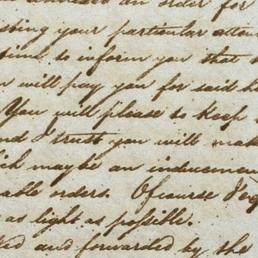 an order for
your particular atten
to inform you that
will pay you for said
You will please to keep
and I trust you will mak
may be an inducemen
able orders. Of course I ex
as light as possible.
and forwarded by the